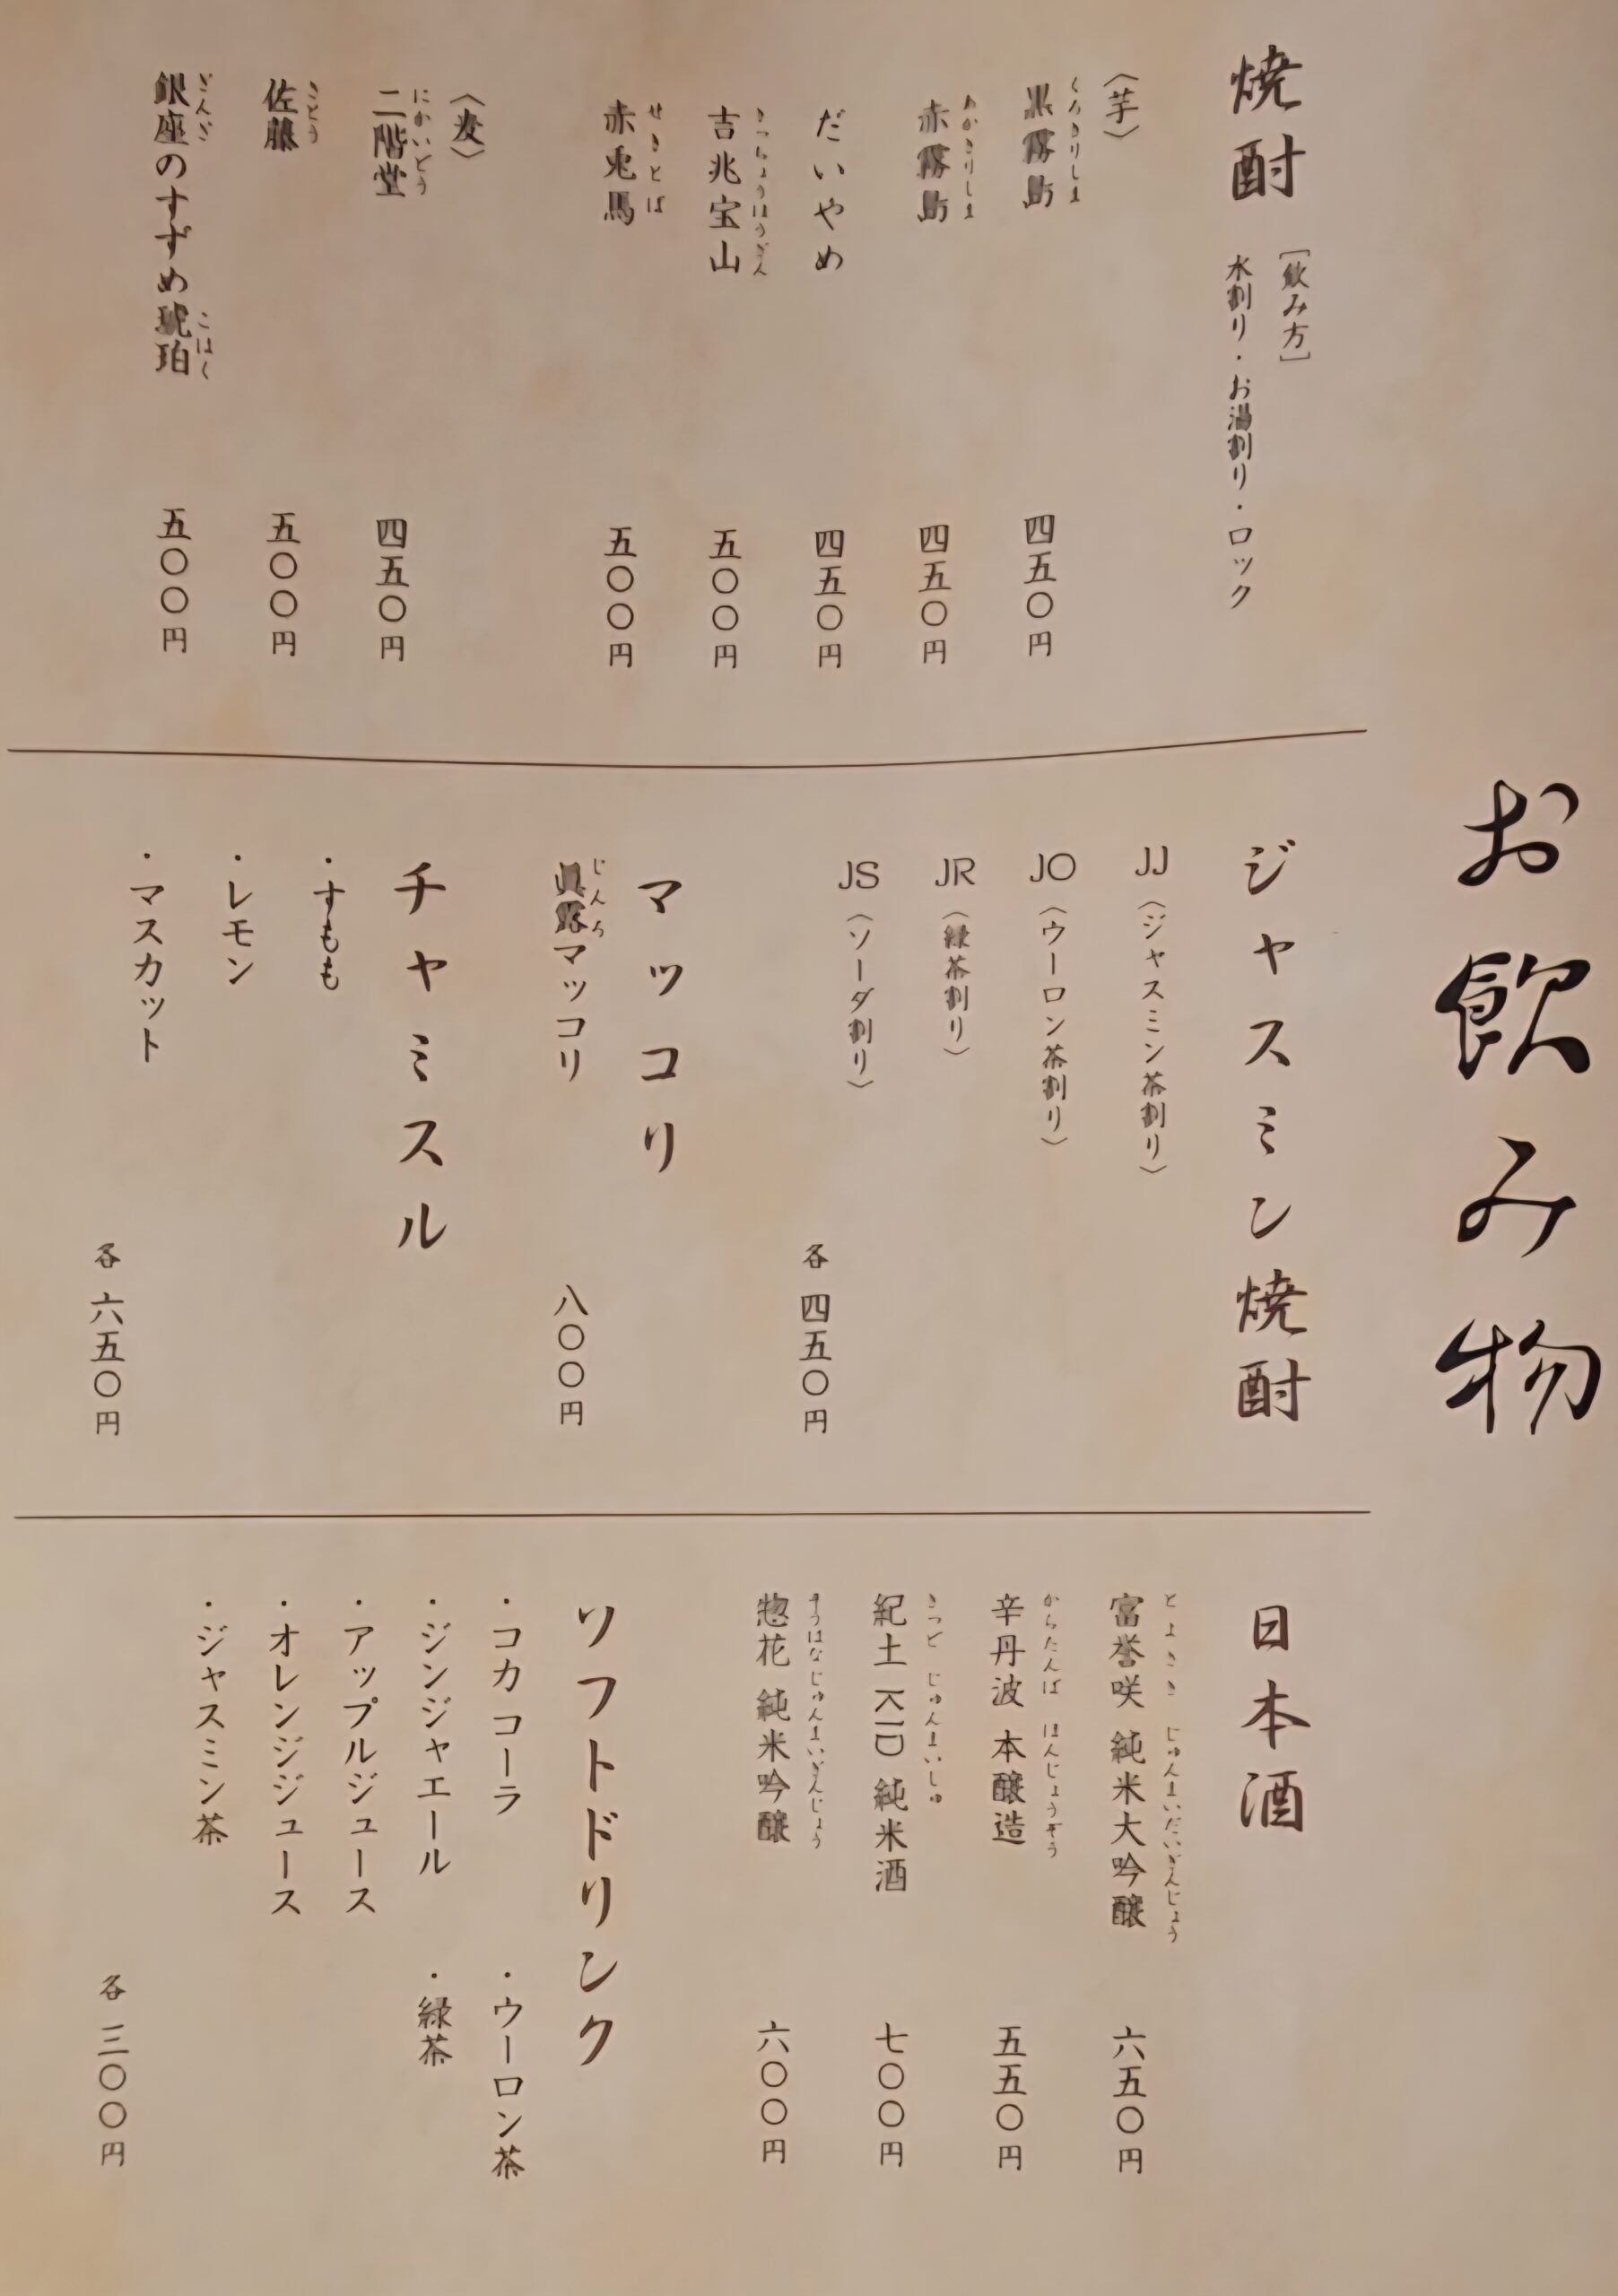 お飲み物
焼酎
[飲み方]
水割り・お湯割り・ロック
〈芋〉
くろきりしま
黒霧島 四五〇円
あかきりしま
赤霧島 四五〇円
だいやめ 四五〇円
きっちょうほうざん
吉兆宝山 五〇〇円
せきとば
赤兎馬 五〇〇円
〈麦〉
にかいどう
二階堂 四五〇円
さとう
佐藤 五〇〇円
ぎんざ こはく
銀座のすずめ琥珀 五〇〇円
ジャスミン焼酎
JJ〈ジャスミン茶割り〉
JO〈ウーロン茶割り〉
JR〈緑茶割り〉
JS〈ソーダ割り〉
各 四五〇円
マッコリ
じんろ
眞露マッコリ 八〇〇円
チャミスル
・すもも
・レモン
・マスカット
各 六五〇円
日本酒
とよさき じゅんまいだいぎんじょう
富誉咲 純米大吟醸 六五〇円
からたんば ほんじょうぞう
辛丹波 本醸造 五五〇円
きっど じゅんまいしゅ
紀土 KID 純米酒 七〇〇円
そうはな じゅんまいぎんじょう
惣花 純米吟醸 六〇〇円
ソフトドリンク
・コカコーラ ・ウーロン茶
・ジンジャエール ・緑茶
・アップルジュース
・オレンジジュース
・ジャスミン茶
各 三〇〇円